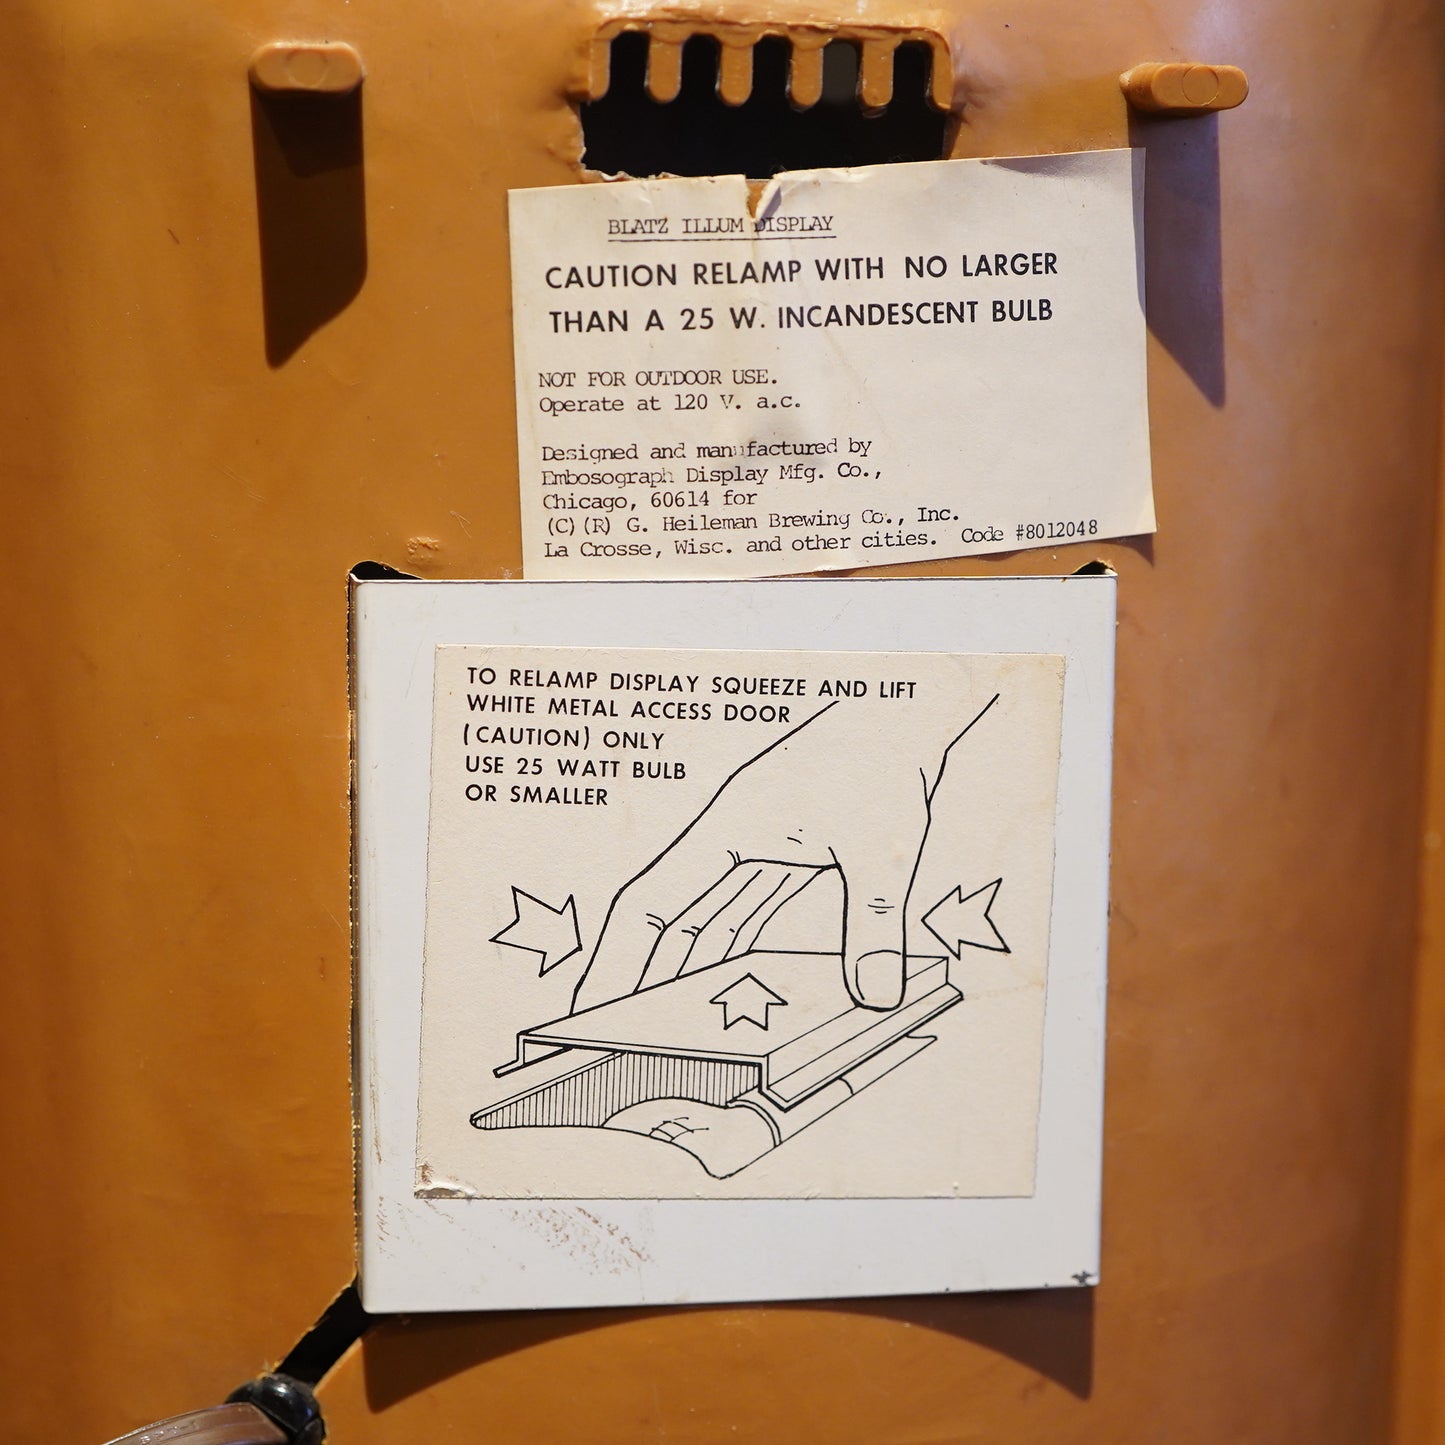 BLATZ ILLUM DISPLAY
CAUTION RELAMP WITH NO LARGER
THAN A 25 W. INCANDESCENT BULB
NOT FOR OUTDOOR USE.
Operate at 120 V. a.c.
Designed and manufactured by
Embosograph Display Mfg. Co.,
Chicago, 60614 for
(C)(R) G. Heileman Brewing Co., Inc.
La Crosse, Wisc. and other cities. Code #8012048
TO RELAMP DISPLAY SQUEEZE AND LIFT
WHITE METAL ACCESS DOOR
(CAUTION) ONLY
USE 25 WATT BULB
OR SMALLER